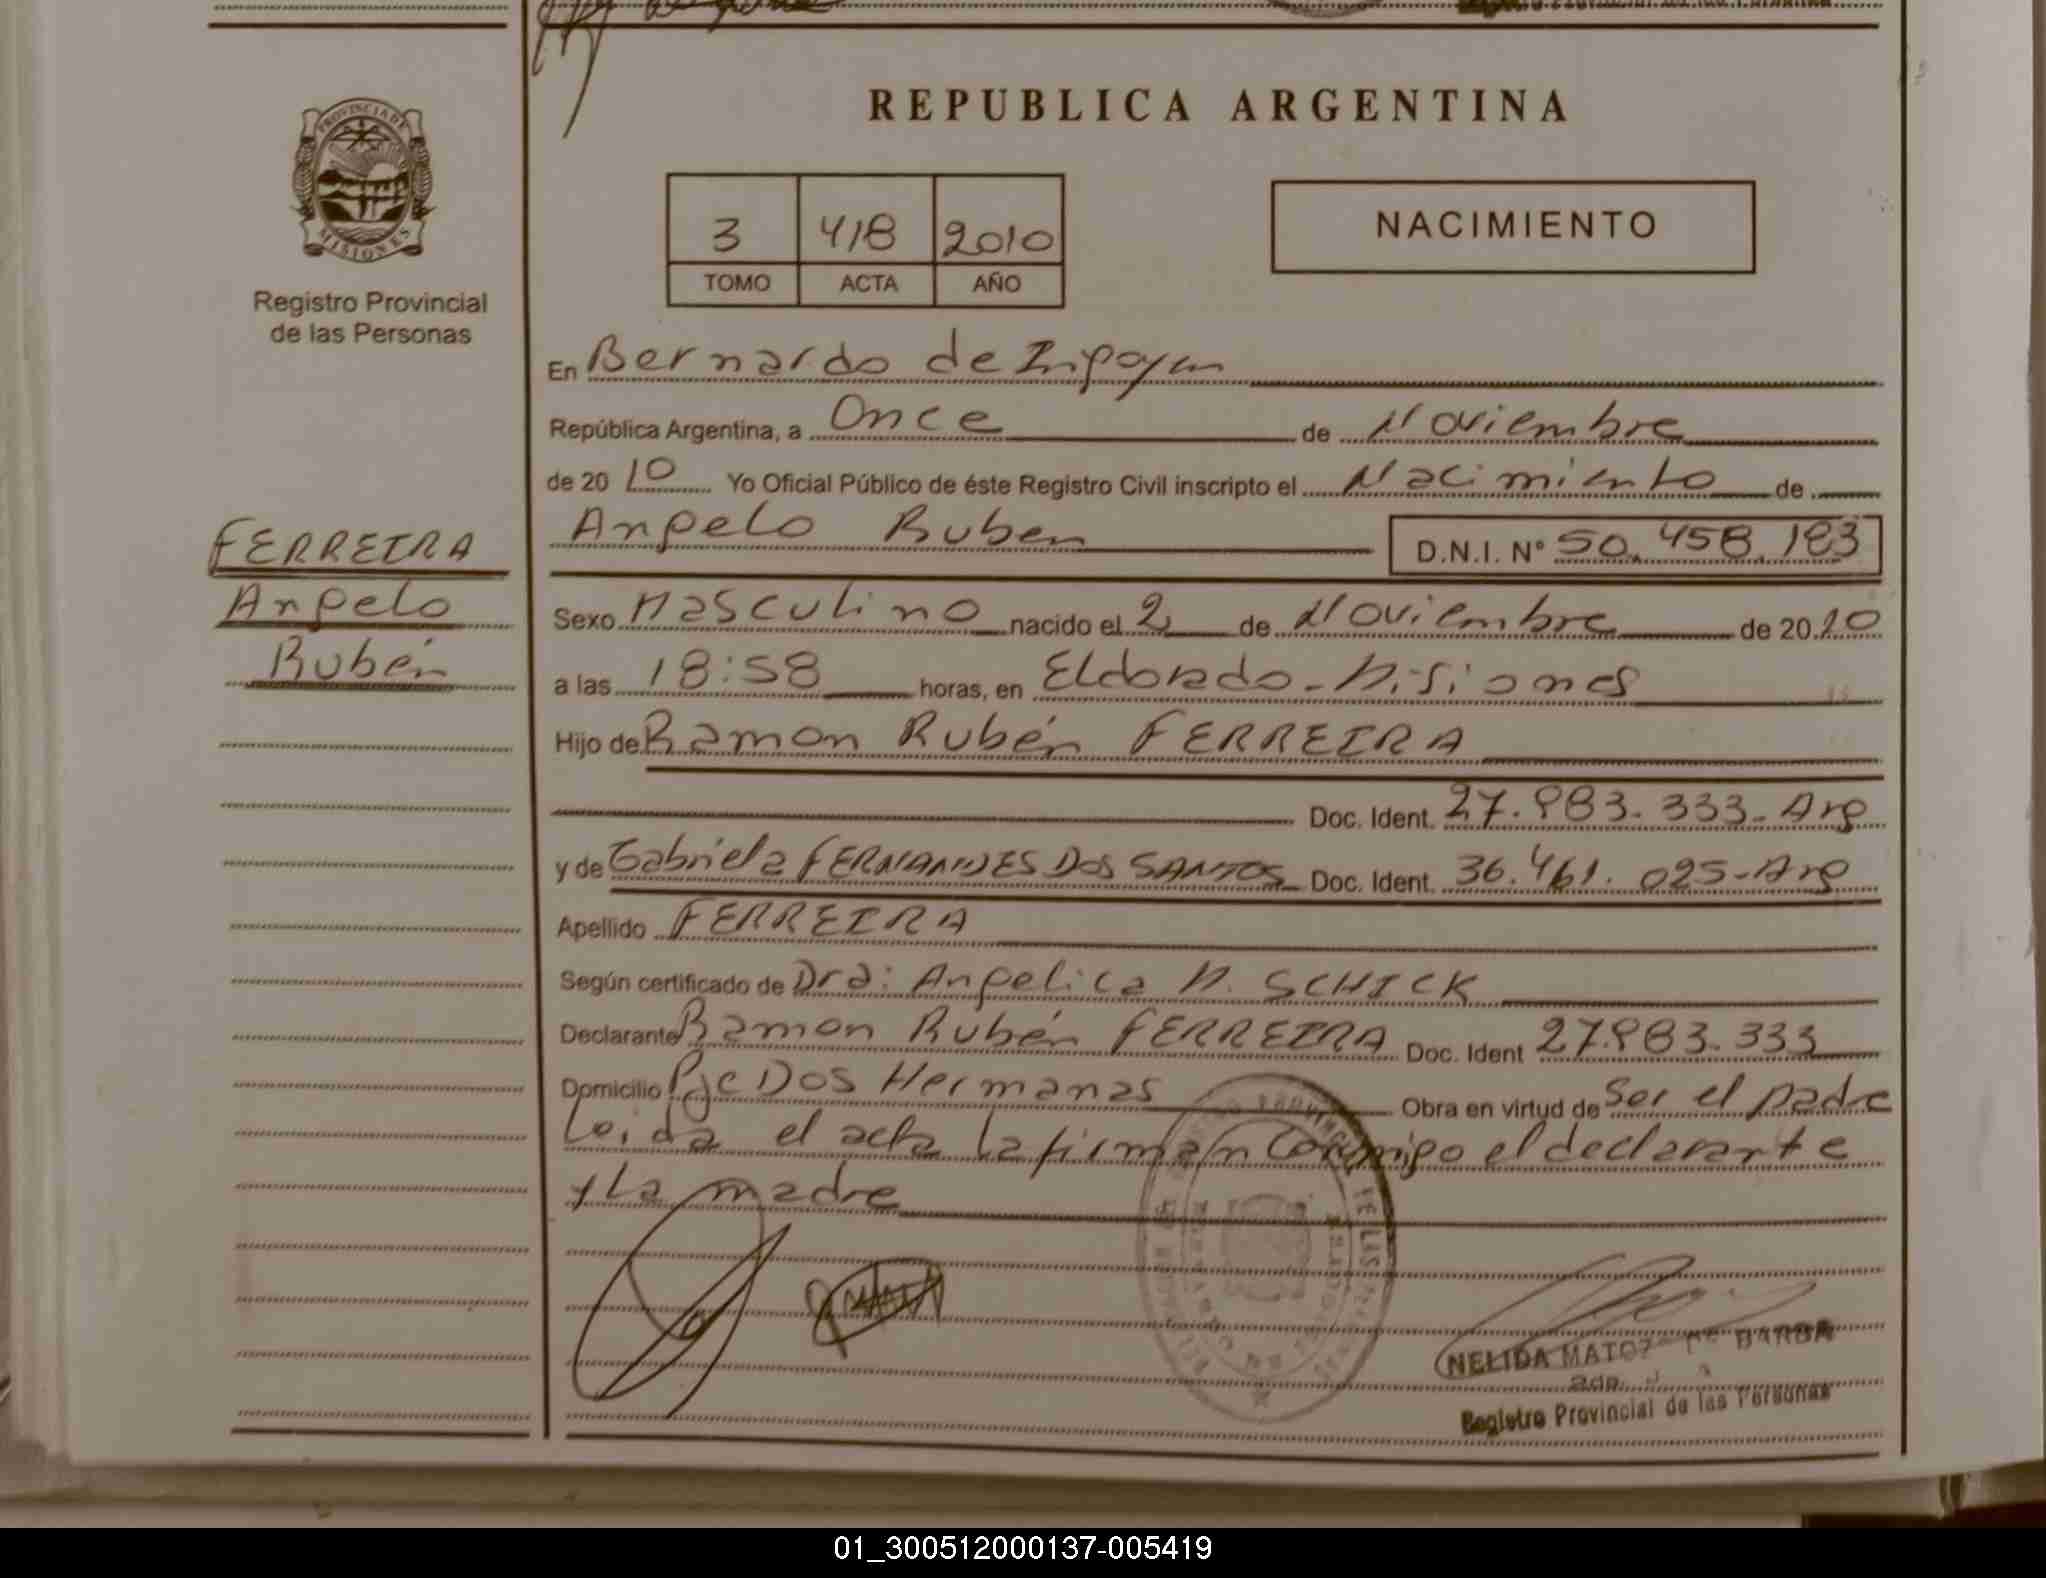 PROVINCIA DE
MISIONES
Registro Provincial
de las Personas
FERREIRA
Angelo
Rubén
REPUBLICA ARGENTINA
3 418 2010
TOMO ACTA AÑO
NACIMIENTO
En Bernardo de Irigoyen
República Argentina, a Once de Noviembre
de 20 10 Yo Oficial Público de éste Registro Civil inscripto el Nacimiento de
Angelo Ruben D.N.I. Nº 50.458.183
Sexo Masculino nacido el 2 de Noviembre de 20 10
a las 18:58 horas, en Eldorado - Misiones
Hijo de Ramon Rubén FERREIRA
Doc. Ident. 27.983.333-Arg
y de Gabriela FERNANDES DOS SANTOS Doc. Ident. 36.461.025-Arg
Apellido FERREIRA
Según certificado de Dra: Angelica M. SCHICK
Declarante Ramon Rubén FERREIRA Doc. Ident 27.983.333
Domicilio Pje Dos Hermanas Obra en virtud de Ser el padre
Leida el acta la firman conmigo el declarante
y La madre
NELIDA MATOZ DE BARBA
Registro Provincial de las Personas
01_300512000137-005419